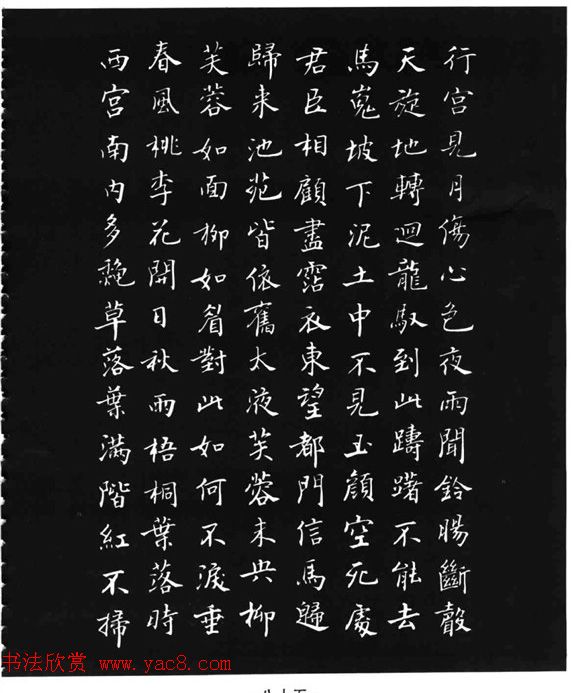 行宮見月傷心色夜雨聞鈴腸斷聲
天旋地轉迴龍馭到此躊躇不能去
馬嵬坡下泥土中不見玉顏空死處
君臣相顧盡霑衣東望都門信馬歸
歸来池苑皆依舊太液芙蓉未央柳
芙蓉如面柳如眉對此如何不淚垂
春風桃李花開日秋雨梧桐葉落時
西宮南内多穐草落葉滿階紅不掃
书法欣赏 www.yac8.com